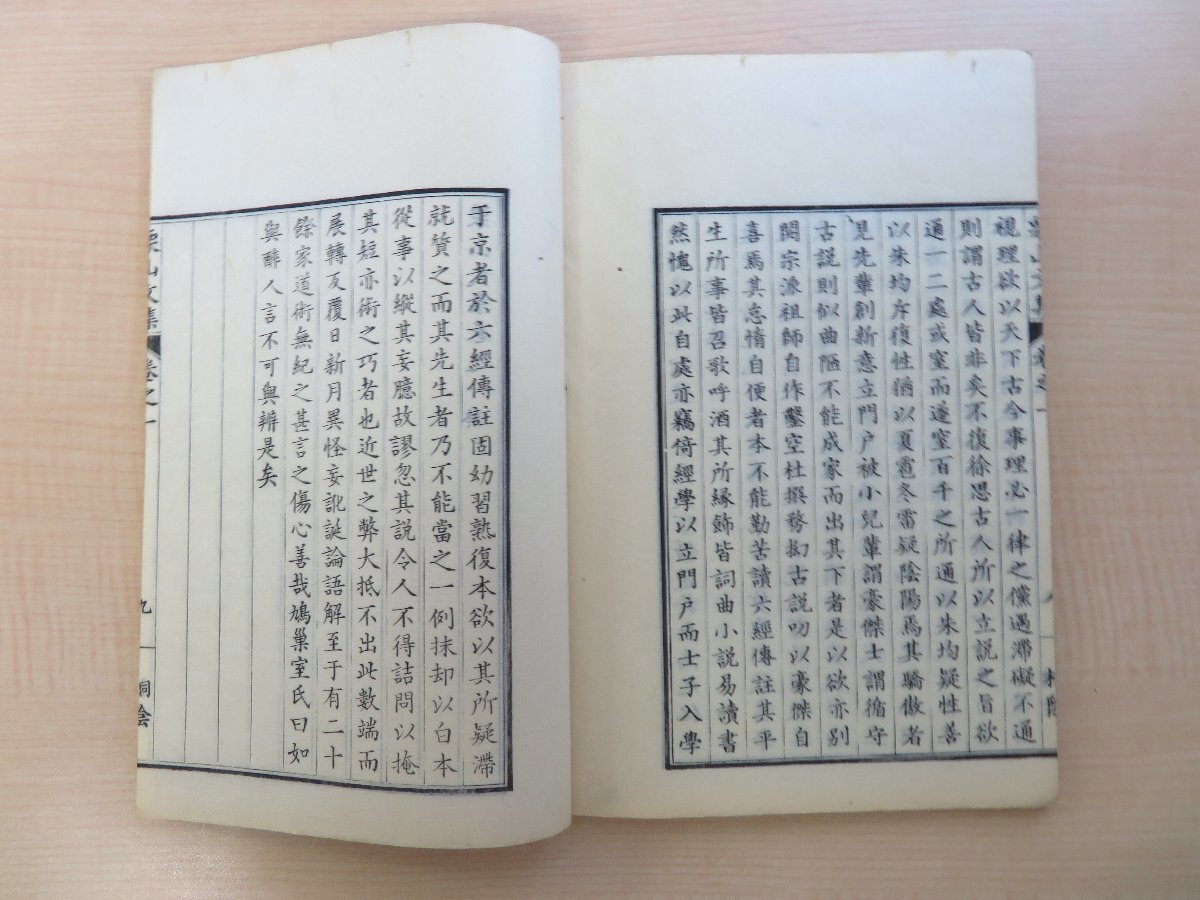 視理欲以天下古今事理必一律之儻遇滯礙不通
則謂古人皆非矣不復徐思古人所以立説之旨欲
通一二處或窒而遂窒百千之所通以朱均疑性善
以朱均斥復性猶以夏雹冬雷疑陰陽焉其驕傲者
見先輩創新意立門户被小兒輩謂豪傑士謂循守
古説則似曲陋不能成家而出其下者是以欲亦別
開宗派祖師自作鑿空杜撰務拗古説叨以豪傑自
喜焉其忘惰自便者本不能勤苦讀六經傳註其平
生所事皆召歌呼酒其所縁飾皆詞曲小説易讀書
然愧以此自處亦竊倚經學以立門户而士子入學
于京者於六經傳註固幼習熟復本欲以其所疑滯
就贄之而其先生者乃不能當之一例抹却以白本
從事以縱其妄臆故謬忽其説令人不得詰問以掩
其短亦術之巧者也近世之弊大抵不出此數端而
展轉反覆日新月異怪妄訛誕論語解至于有二十
餘家道術無紀之甚言之傷心善哉鳩巢室氏曰如
與醉人言不可與辨是矣
栗山文集
卷之一
九
桐陰